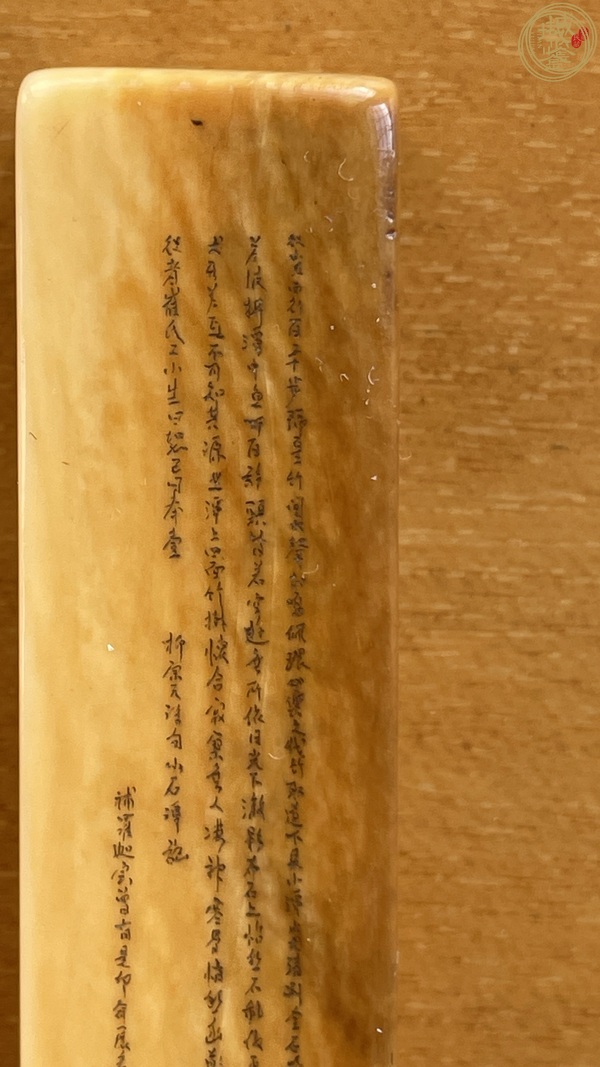 從小丘西行百二十步隔篁竹聞水聲如鳴佩環心樂之伐竹取道下見小潭水清冽全石以
潭中魚可百許頭皆若空遊無所依日光下澈影布石上怡然不動俶而
犬牙差互不可知其源坐潭上四面竹樹懷合寂寥無人淒神寒骨悄愴幽邃
從者崔氏二小生曰恕己曰奉壹 柳宗元詩句小石潭記
補羅迦室曾有是印